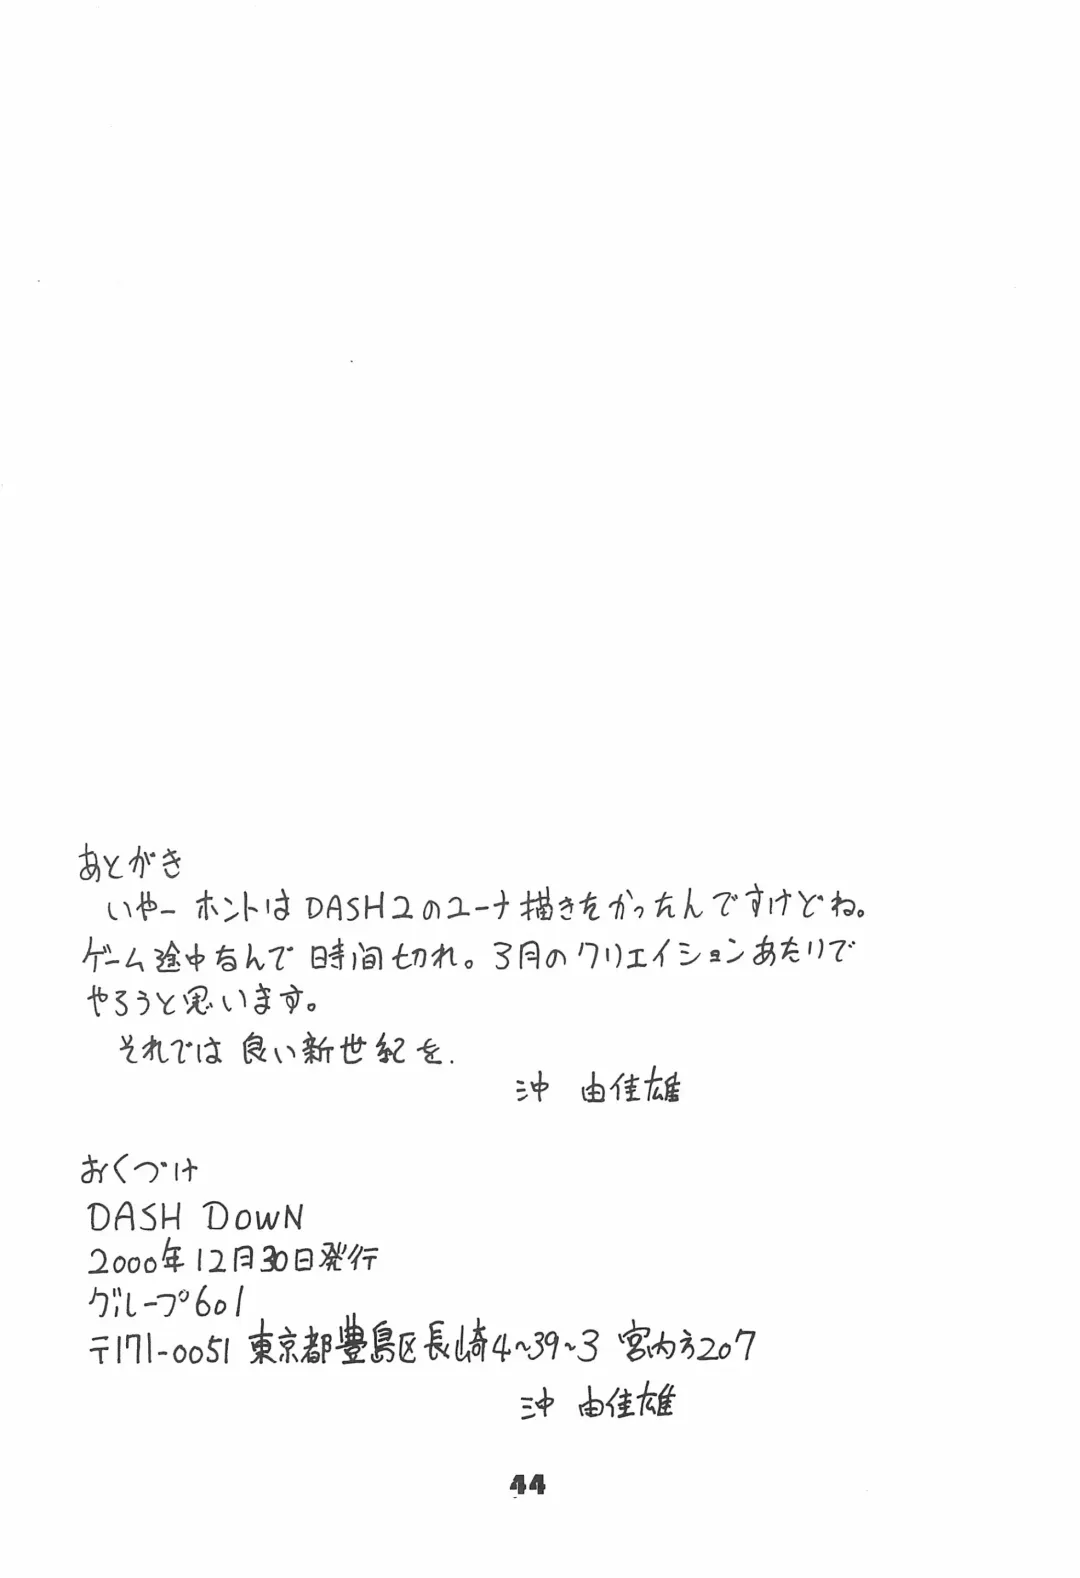 あとがき
いやー ホントは DASH2のユーナ描きたかったんですけどね。
ゲーム途中なんで 時間切れ。3月のクリエイションあたりで
やろうと思います。
それでは 良い新世紀を.
沖 由佳雄
おくづけ
DASH DOWN
2000年12月30日発行
グループ601
〒171-0051 東京都豊島区長崎4~39~3 宮内方207
沖 由佳雄
44